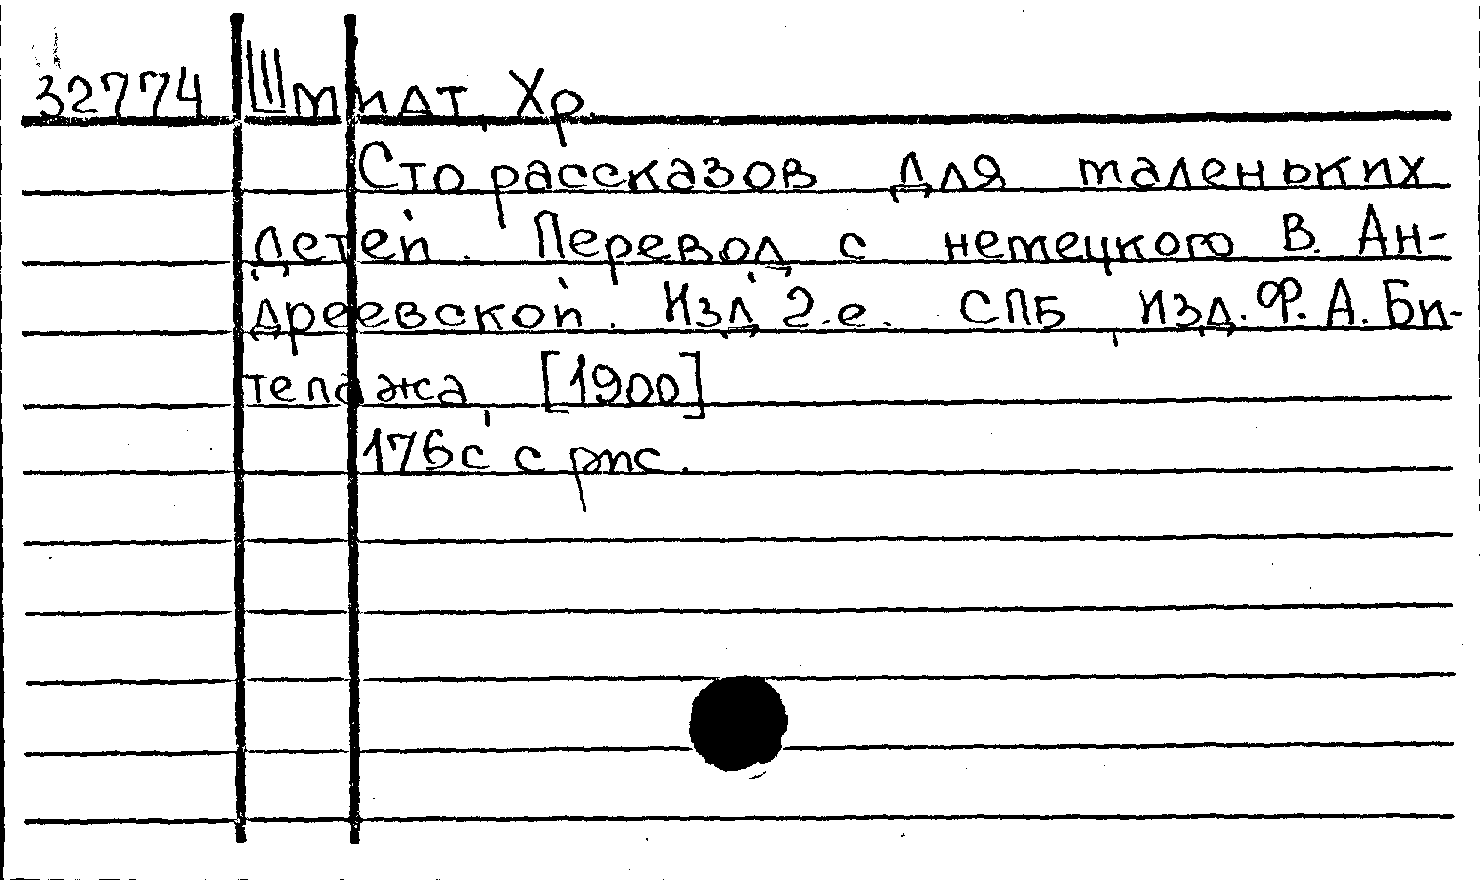 32774 Шмидт, Хр.
Сто рассказов для маленьких
детей. Перевод с немецкого В. Ан-
дреевской. Изд 2-е. СПБ, изд. Ф. А. Би-
тепажа, [1900]
176с с рис.